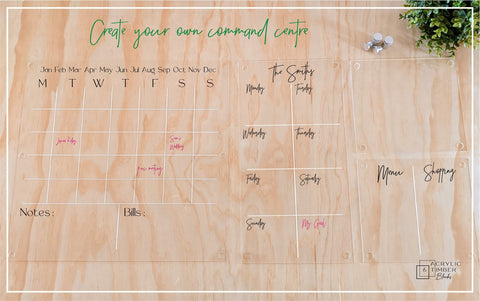 Create your own command centre
Jan Feb Mar Apr May Jun Jul Aug Sep Oct Nov Dec
M T W T F S S
Sam's
Wedding
Notes: Bills:
The Smiths
Monday Tuesday
Wednesday Thursday
Friday Saturday
Sunday My Goal
Menu Shopping
ACRYLIC
& TIMBER
Blanks